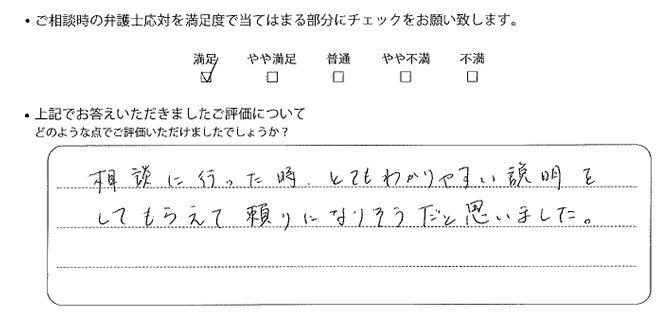 ・ご相談時の弁護士応対を満足度で当てはまる部分にチェックをお願い致します。
満足 やや満足 普通 やや不満 不満
☑ □ □ □ □
・上記でお答えいただきましたご評価について
どのような点でご評価いただけましたでしょうか？
相談に行った時、とてもわかりやすい説明を
してもらえて頼りになりそうだと思いました。